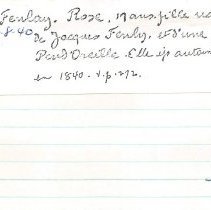 Fenlay, Rose, 17 ans, fille na
8-40 de Jacques Fenly, et d'une
Pend'Oreille. Elle ép. autom
en 1840. v.p. 272.